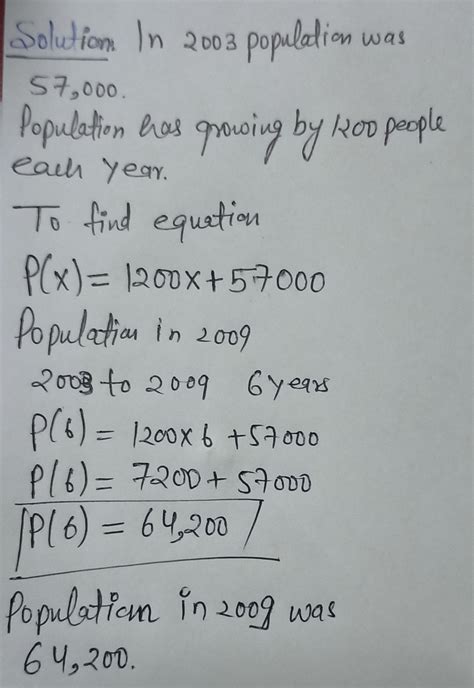 Solution In 2003 population was
57,000.
Population has growing by 1200 people
each year.
To find equation
P(x) = 1200x + 57000
Population in 2009
2003 to 2009 6 years
P(6) = 1200x6 + 57000
P(6) = 7200 + 57000
P(6) = 64,200
Population in 2009 was
64,200.